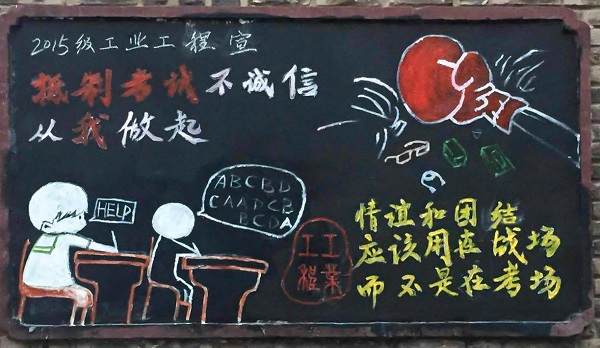 2015级工业工程宣
抵制考试不诚信
从我做起
HELP
ABCBD
CAADCB
BCDA
工工
程業
情谊和团结
应该用在战场
而不是在考场